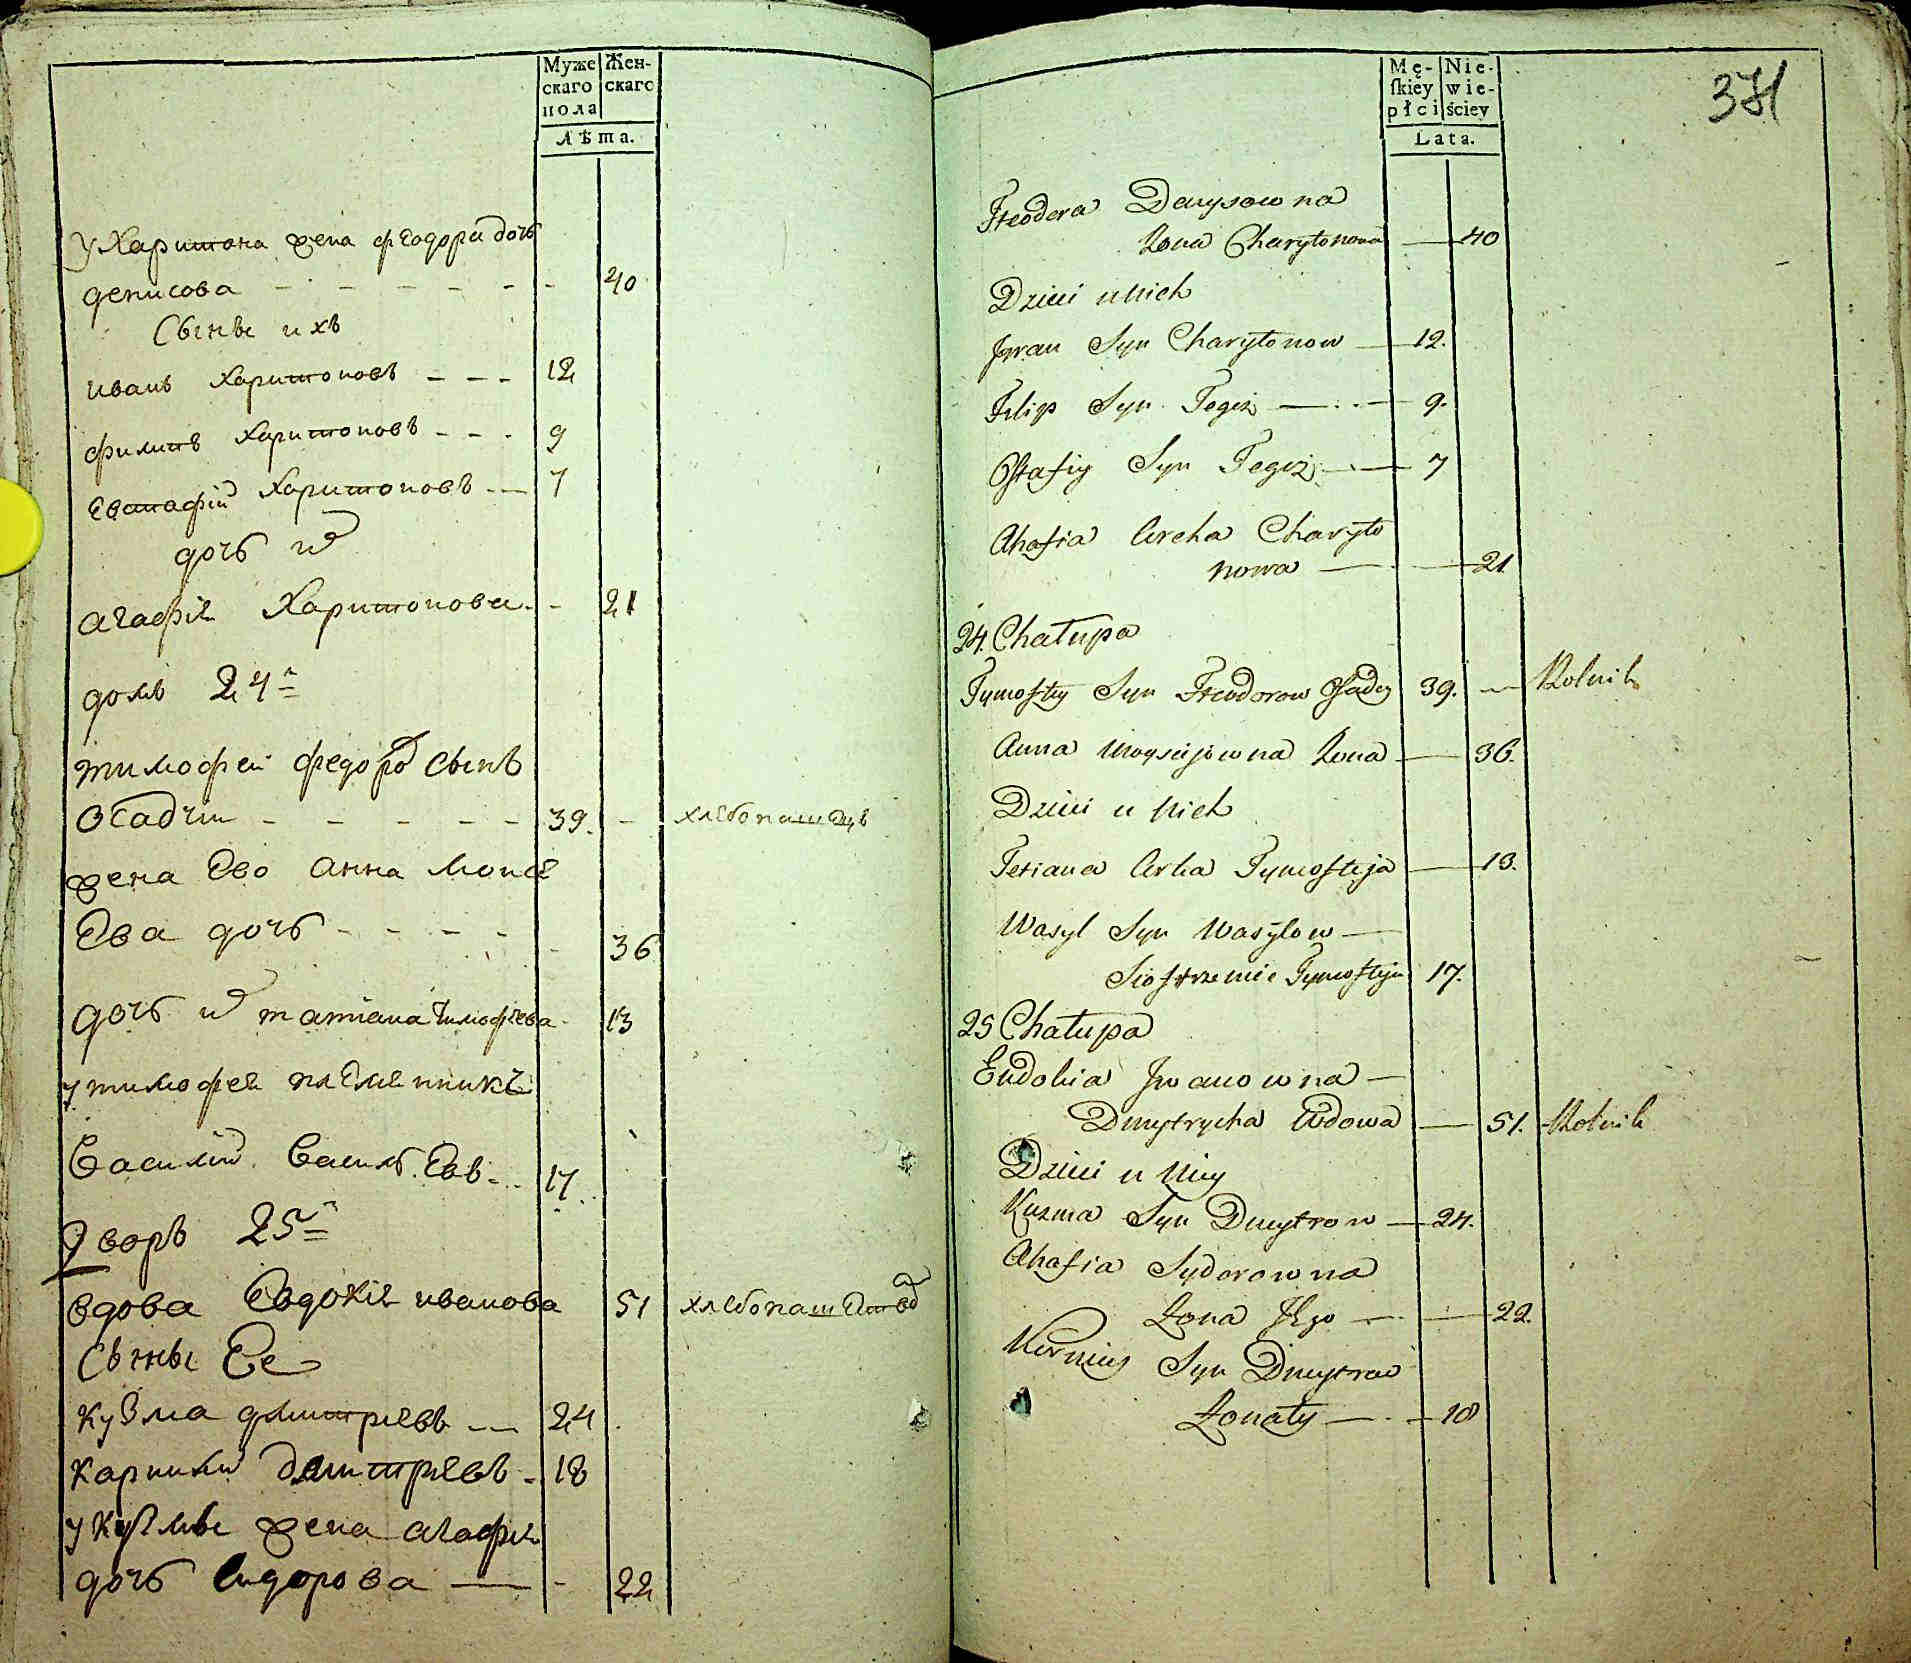 Муже
скаго
пола
Жен-
скаго
Лѣта.
У Харитона жена феодора дочь
денисова - - - - - - 40
Сыны ихъ
иванъ Харитоновъ - - - 12
филипъ Харитоновъ - - - 9
Евстафій Харитоновъ - - 7
дочь их
агафія Харитонова - - 21
домъ 24й
тимофей федоров сынъ
осадчи - - - - - - 39. - хлебопашецъ
жена Ево анна Моисе
Ева дочь - - - - - 36
дочь их татіана тимофѣева - 13
у тимофея племенникъ
Василий Василь. Евъ - - 17
дворъ 25й
вдова Евдокія иванова 51 хлебопаш
Сыны Ее
Кузма дмитріевъ - - 24
Карнилий дмитріевъ - 18
у Кузмы жена агафия
дочь Сидорова - - 22
Mę-
skiey
płci
Nie-
wie-
ściey
Lata.
371
Fteodora Denysowna
Żona Charytonowa — 40
Dzieci u Nich
Jwan Syn Charytonow — 12.
Filip Syn Tegoż — 9.
Ostafiy Syn Tegoż — 7
Ahafia Corka Charyto
nowa — 21
24. Chałupa
Tymoftey Syn Fteodorow Osadczy 39. — Rolnik
Anna Moysejowna Żona — 36.
Dzieci u Nich
Tetiana Corka Tymofteja — 13.
Wasyl Syn Wasylow —
Siostrzeniec Tymofteja 17.
25 Chałupa
Eudokia Jwanowna —
Dmytrycha Wdowa — 51. Rolnik
Dzieci u Niey
Kuzma Syn Dmytrow — 24.
Ahafia Sydorowna
Żona Jego — 22.
Korniey Syn Dmytrow
Żonaty — 18